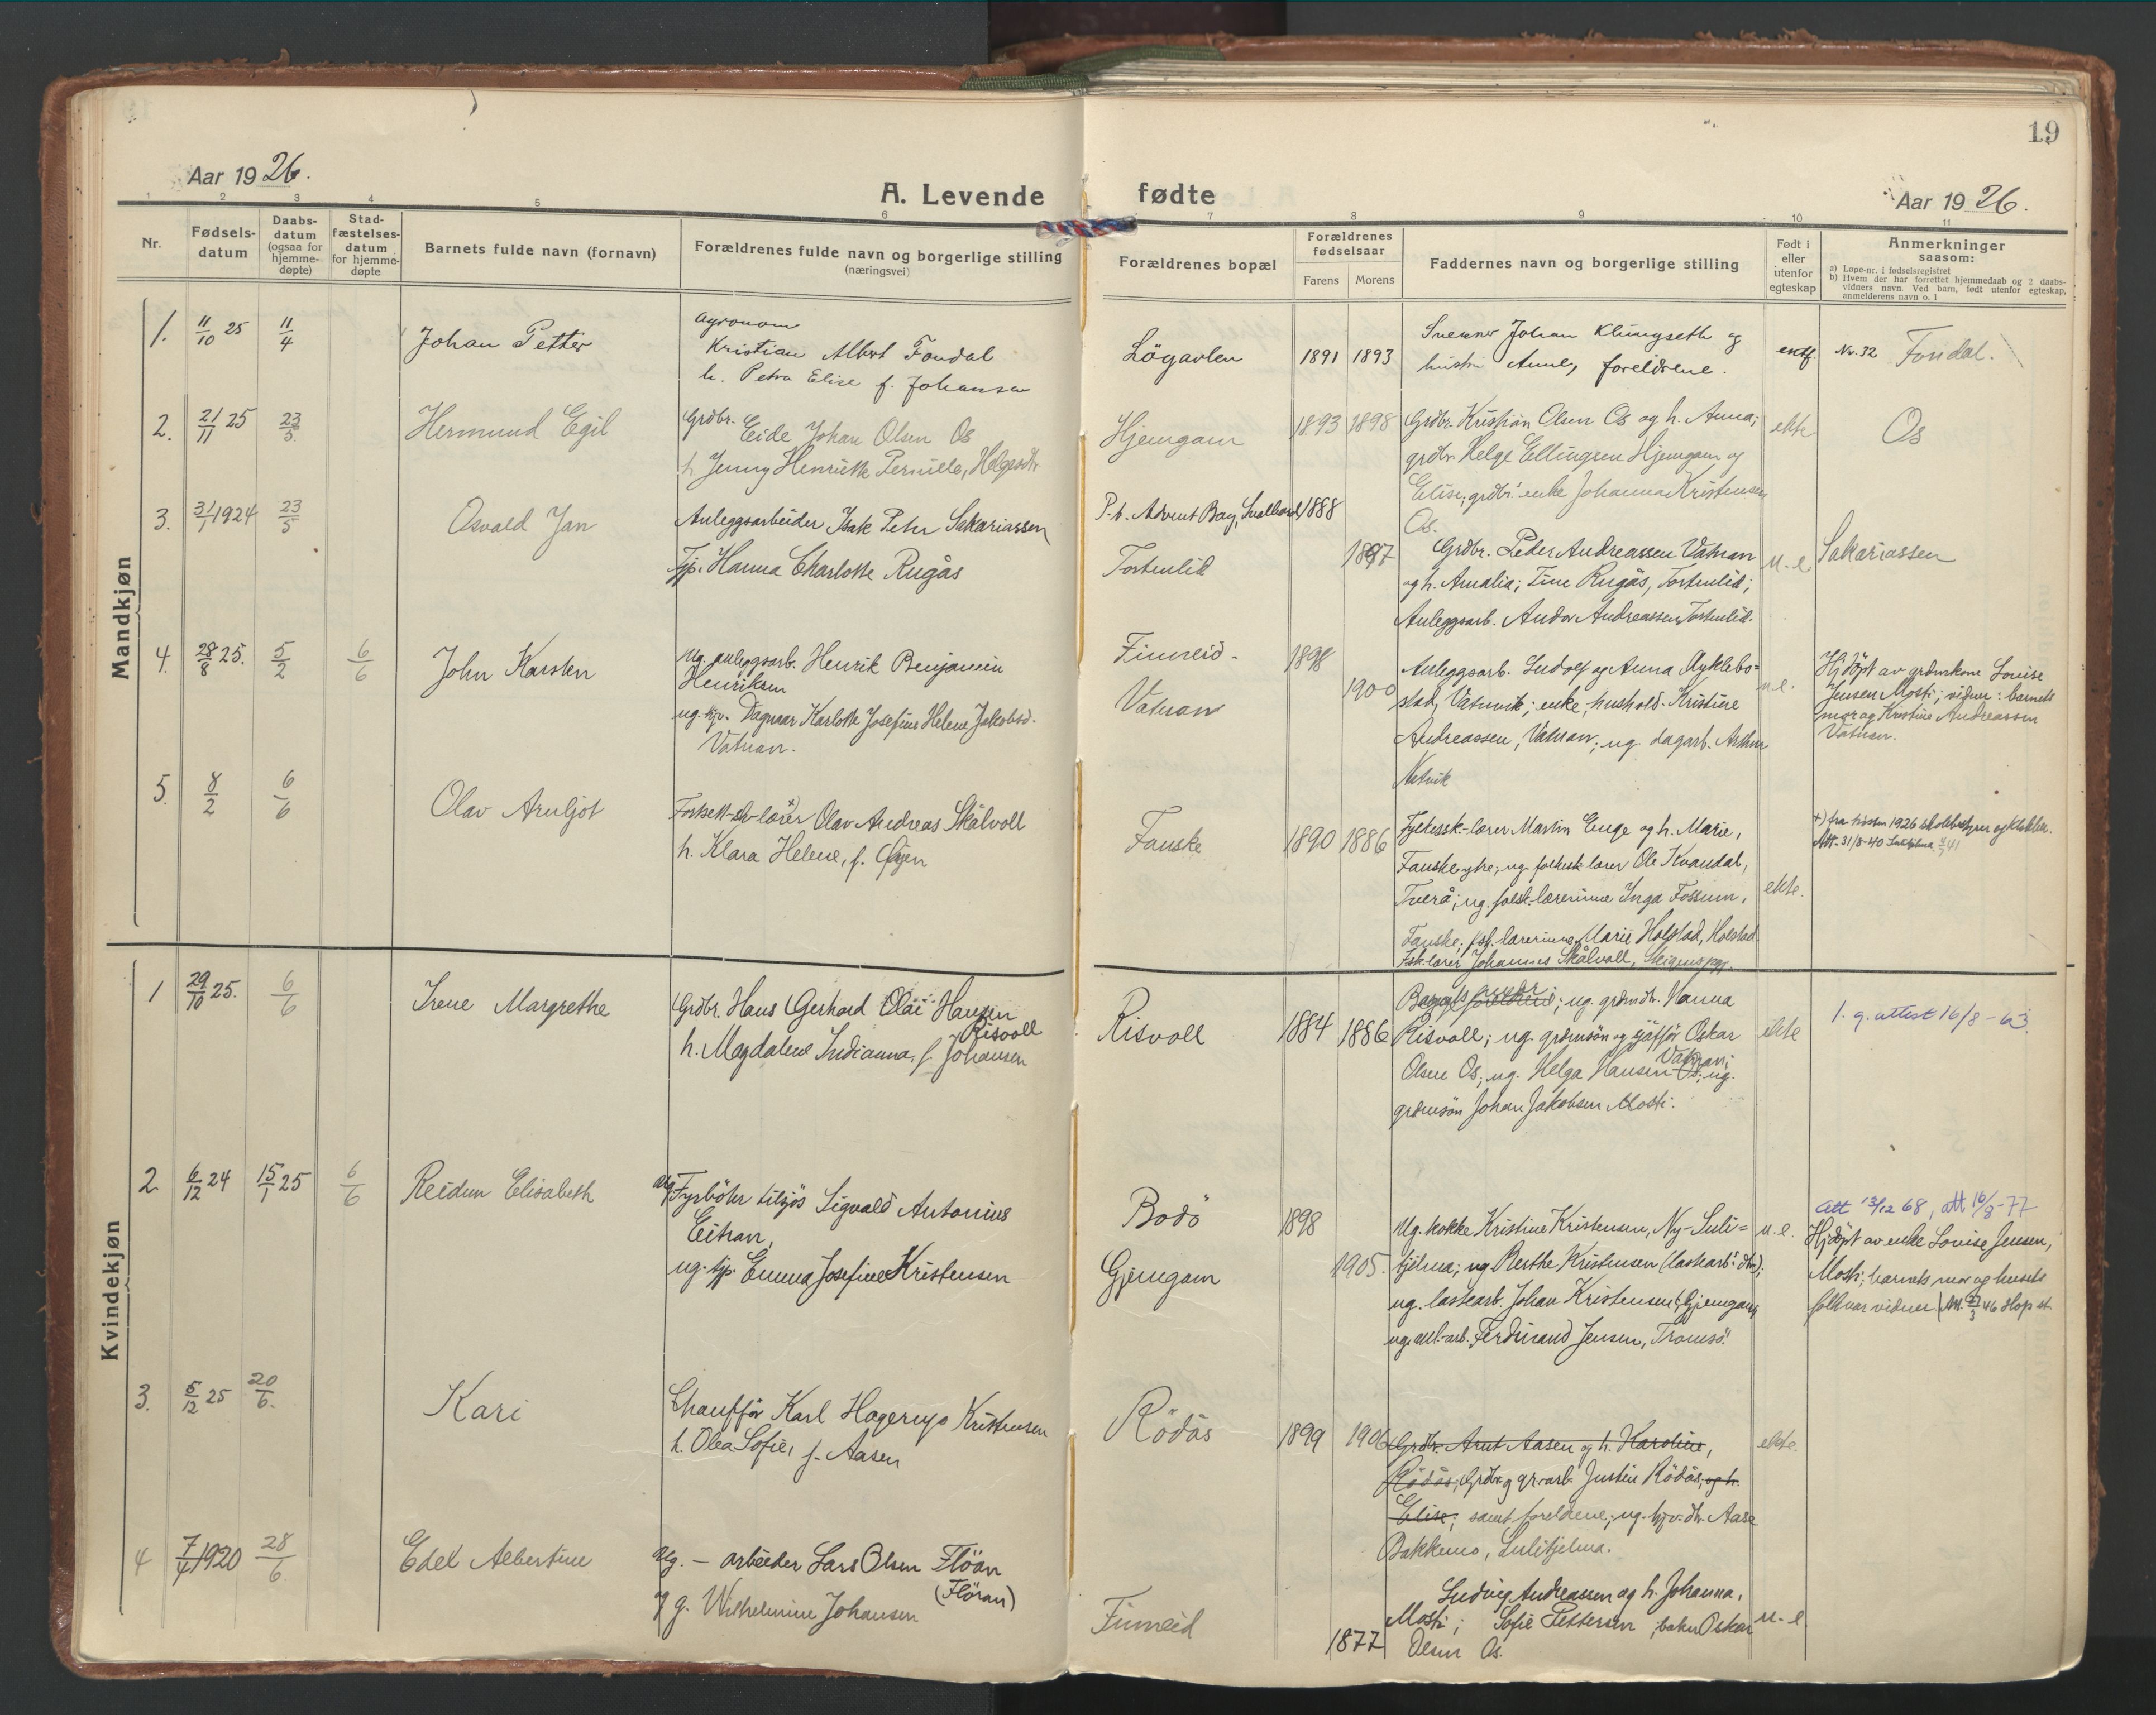 19
Aar 1926.
A. Levende fødte
Aar 1926.
1 2 3 4 5 6 7 8 9 10 11
Nr.
Fødsels-
datum
Daabs-
datum
(ogsaa for
hjemme-
døpte)
Stad-
fæstelses-
datum
for hjemme-
døpte
Barnets fulde navn (fornavn)
Forældrenes fulde navn og borgerlige stilling
(næringsvei)
Forældrenes bopæl
Forældrenes
fødselsaar
Farens Morens
Faddernes navn og borgerlige stilling
Født i
eller
utenfor
egteskap
Anmerkninger
saasom:
a) Løpe-nr. i fødselsregistret
b) Hvem der har forrettet hjemmedaab og 2 daabs-
vidners navn. Ved barn, født utenfor egteskap,
anmelderens navn o. l
Mandkjøn
1. 11/10 25 11/4
Johan Petter
Agronom
Kristian Albert Fondal
h. Petra Elise f. Johansen
Lögavlen
1891 1893
Johan Klungseth og
hustru Anne, foreldrene.
ektf
Nr. 32 Fondal.
2. 21/11 25 23/5.
Hermund Egil
Grdbr.
Eide Johan Olsen Os
h. Jenny Henrikke Pernille, Helgesdtr
Hjemgam
1893 1898
Grdbr. Kristian Olsen Os og h. Anna;
grdbr. Helge Ellingsen Hjemgam og
Elise; grdbr.' enke Johanna Kristensen
Os.
ekte.
Os
3. 31/1 1924 23/5
Osvald Jan
Anleggsarbeider Isak Petur Sakariassen
Tjp. Hanna Charlotte Rugås
P.t. Advent Bay, Svalbard 1888
Tortenlid
1897
Grdbr. Peder Andreassen Vatnan
og h. Amalia; Tine Rugås, Tortenlid;
Anleggsarb. Andor Andreassen, Tortenlid.
u.e.
Sakariassen
4. 28/8 25. 5/2 6/6
John Karsten
Ug. anleggsarb. Henrik Benjamin
Henriksen
ug. tjv. Dagmar Karlotte Josefine Helene Jakobsd.
Vatnan.
Finneid.
1898
Vatnan
1900
Anleggsarb. Ludolf og Anna Myklebo-
stad, Vatnvik; enke, hushold. Kristine
Andreassen, Vatnan; ug. dagarb. Arthur
u.e.
Hjdöpt av grdmkone Louise
Jensen Mosti; vidner: barnets
mor og Kristine Andreassen
Vatnan.
5. 8/2 6/6
Olav Arnljot
Olav Andreas Skålvoll
h. Klara Helene, f. Öyen
Fauske
1890 1886
Fylkessk-lærer Martin Enge og h. Marie,
Fauske ytre; ug. folkesk.lærer Ole Kvandal,
Tverå; ug. folk.lærerinne Inga Fossum,
Fauske; fsk. lærerinne Marie Holstad, Holstad.
Fsk.lærer Johannes Skålvoll,
ekte.
+) fra høsten 1926 skolebestyrer og klokker.
Att. 31/8-40
Kvindekjøn
1 29/10 25. 6/6
Irene Margrethe
Grdbr. Hans Gerhard Olai Hansen
Risvoll
h. Magdalene Indianna, f. Johansen
Risvoll
1884 1886
Barnets foreldrene; ug. grdmdtr. Hanna
Risvoll; ug. grdmsön og sjåfför Oskar
Olsen Os; ug. Helga Hansen Os; ug.
Vatnan;
grdmsön Johan Jakobsen Mosti.
ekte
1. g. attest 16/8-63.
2. 6/12 24 15/1 25 6/6
Reidun Elisabeth
Ug. Fyrböter tilsjös Sigvald Antonius
Eitran,
ug. tjp. Emma Josefine Kristensen
Bodö
1898
Gjemgam
1905.
Ug. kokke Kristine Kristensen, Ny-Suli-
tjelma; ug Berthe Kristensen (lastearb.s dtr.);
ug. lastearb. Johan Kristensen, Gjemgam;
ug. anl-arb. Ferdinand Jensen, Tromsö.
u.e.
att 13/12 68, att 16/8-77
Hjdöpt av enke Lovise Jensen,
Mosti; barnets mor og husets
folk var vidner
3. 5/12 25 20/6.
Kari
Chaufför Karl Hagerup Kristensen
h. Olea Sofie, f. Aasen
Rödås
1899 1906
Grdbr. Arnt Aasen og h. Karoline,
Rödås; Grdbr. og gr.arb. Justin Rödås, og h.
Elise; samt foreldrene; ug. tjv. dtr. Aase
Bakkemo, Sulitjelma.
ekte.
4 7/4 1920 28/6
Edel Albertine
Ug. – arbeider Lars Olsen Flöan
(Flöran)
og g. Wilhelmine Johansen
Finneid
1877
Ludvig Andreassen og h. Johanna,
Mosti; Sofie Pettersen; baker Oskar
Olsen Os.
u.e.